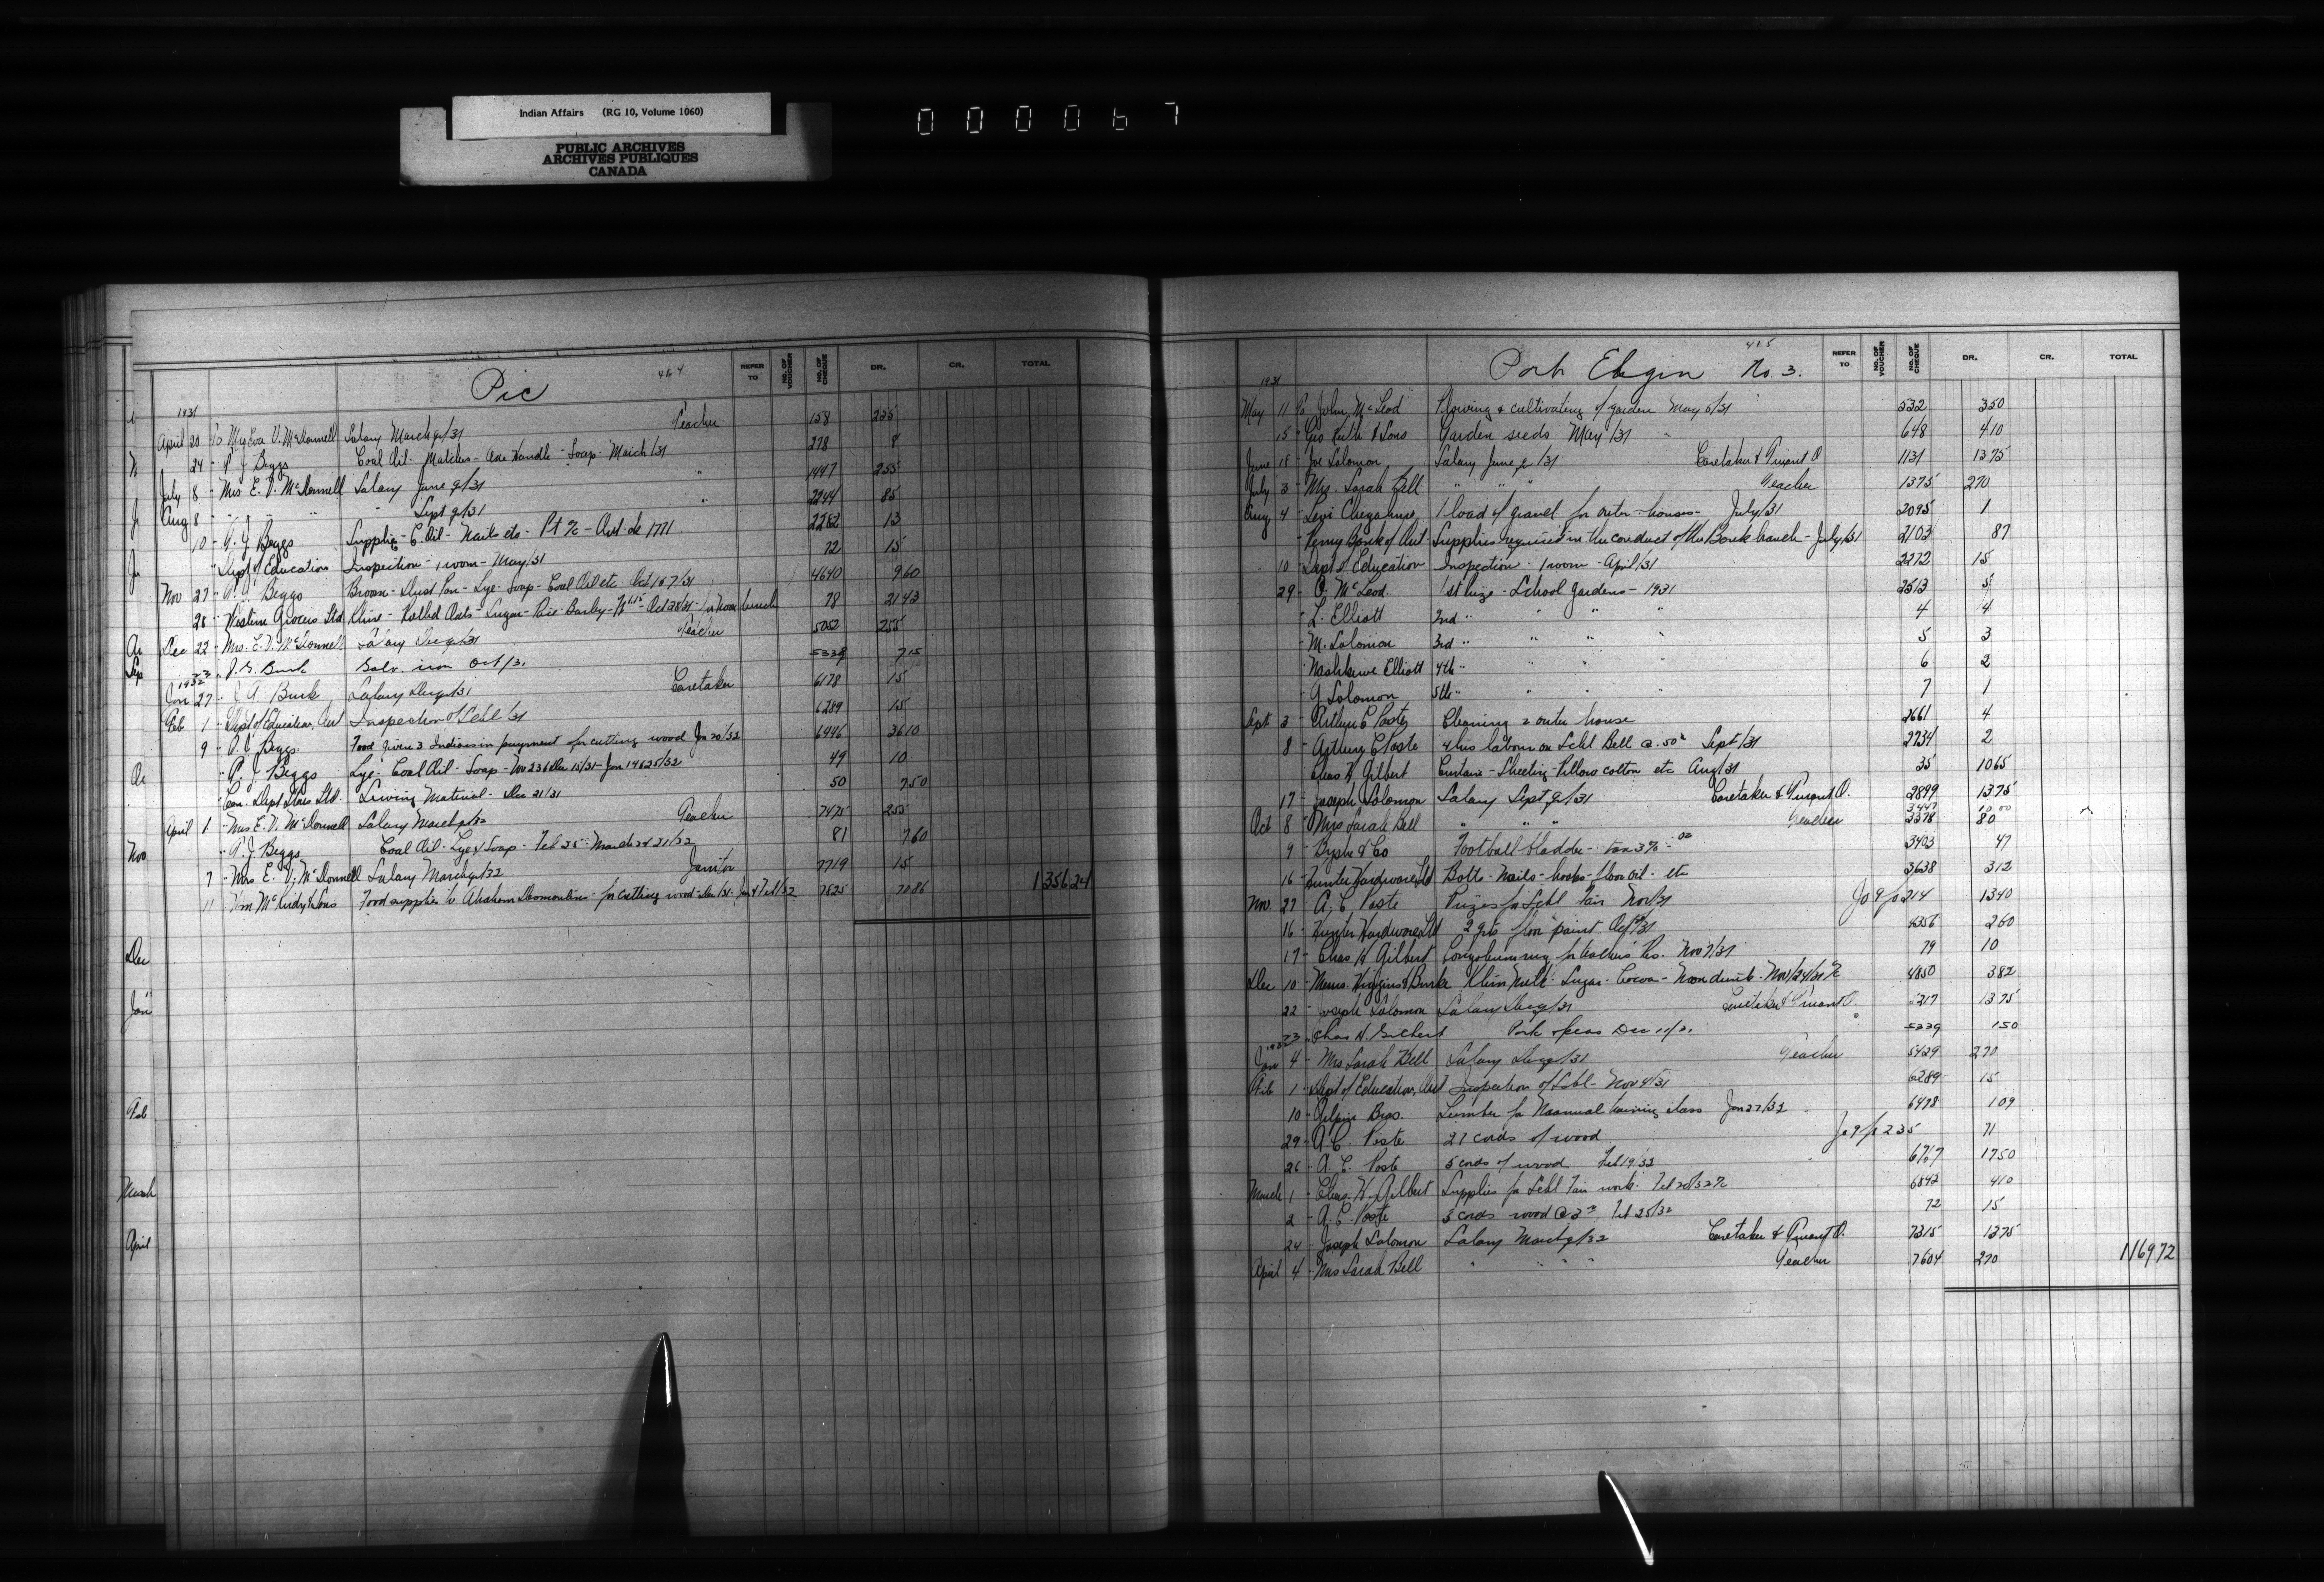 Indian Affairs (RG 10, Volume 1060)
PUBLIC ARCHIVES
ARCHIVES PUBLIQUES
CANADA
000067
Pic 414
REFER TO NO. OF VOUCHER NO. OF CHEQUE DR. CR. TOTAL
1931
April 20 To Mrs Eva V. McDonnell Salary March q/31 Teacher 158 225
24 " P. J. Beggs Coal Oil - Matches - Axe Handle - Soap - March/31 278 8
July 8 " Mrs E. V. McDonnell Salary June q/31 " 1447 255
Aug 8 " " " Sept q/31 " 2244 85
10 " P. J. Beggs Supplies - C. Oil - Nails etc - Pt % - 2282 13
" Dept of Education Inspection - 1 room - May/31 72 15
Nov 27 " P. J. Beggs Broom - Dust Pan - Lye - Soap - Coal Oil etc Oct 167/31 4640 960
28 " Western Grocers Ltd. Klim - Rolled Oats - Sugar - Rice - Barley - Oct 28/31 - for noon lunch 78 2143
Dec 22 - Mrs. E. V. McDonnell Salary Dec q/31 Teacher 5052 255
23 " J. G. Burk Galv. iron Oct/31 5338 715
1932
Jan 27 - Burk Salary Dec q/31 Caretaker 6178 15
Feb 1 " Dept of Education, Ont Inspection of Schl /31 6289 15
9 " P. J. Beggs Food given 3 Indians in payment for cutting wood Jan 20/32 6446 3610
" P. J. Beggs Lye - Coal Oil - Soap - Dec 15/31 - Jan 14 & 25/32 49 10
" Can. Dept Stores Ltd. Sewing Material - Dec 21/31 50 750
April 1 " Mrs E. V. McDonnell Salary March q/32 Teacher 7475 255
" P. J. Beggs Coal Oil - Lye & Soap - Feb 25 - March 24 & 31/32 81 760
7 " Mrs E. V. McDonnell Salary March q/32 Janitor 7719 15
11 " Food supplies to Abraham for cutting wood - Dec/31 - Jan & Feb/32 7825 7086 1356 24
Nov
Dec
Jan
Feb
March
April
Port Elgin No. 3. 415
REFER TO NO. OF VOUCHER NO. OF CHEQUE DR. CR. TOTAL
1931
May 11 To John McLeod Plowing & cultivating of garden May 5/31 532 350
15 " Geo Keith & Sons Garden seeds May/31 648 410
June 18 " Joe Solomon Salary June q/31 Caretaker & Truant O 1131 1375
July 3 " Mrs. Sarah Bell " " " Teacher 1375 270
Aug 4 " Levi 1 load of gravel for outer-houses - July/31 2095 1
" Penny Bank of Ont Supplies required in the conduct of the Bank branch - July/31 2103 87
10 " Dept of Education Inspection - 1 room - April/31 2272 15
29 " O. McLeod 1st Prize - School Gardens - 1931 2513 5
" L. Elliott 2nd " " " 4 4
" M. Solomon 3rd " " " 5 3
" Elliott 4th " " " 6 2
" G. Solomon 5th " " " 7 1
Sept 3 " Arthur C. Poste Cleaning 2 outer house 2661 4
8 " Arthur C. Poste 4 hrs labour on Schl Bell @ .50¢ Sept/31 2734 2
" Chas H. Gilbert Curtain - Sheeting - Pillow cotton etc Aug/31 35 1065
17 " Joseph Solomon Salary Sept q/31 Caretaker & Truant O. 2899 1375
Oct 8 " Mrs Sarah Bell " " " Teacher 3378 80
9 " Football bladder - 3403 47
16 " Hunter Hardware Ltd Bolts - nails - hooks - floor oil - etc 3638 312
Nov. 27 " A. C. Poste Prizes for Schl Fair Nov/31 214 1340
16 " Hunter Hardware Ltd 2 qts floor paint 4356 260
17 " Chas H Gilbert Congoleum rug for teachers Res. Nov 7/31 79 10
Dec 10 " Messrs. Higgins & Burke Klim Milk - Sugar - Cocoa - Nov/24/31 4850 382
22 " Joseph Solomon Salary Dec q/31 Caretaker & Truant O. 5217 1375
23 " Chas H. Gilbert Dec 11/31 5339 150
1932
Jan 4 " Mrs Sarah Bell Salary Dec q/31 Teacher 5429 270
Feb 1 " Dept of Education, Ont Inspection of Schl - Nov 4/31 6289 15
10 " Gilpin Bros. Lumber for Maanual training class Jan 27/32 6498 109
29 " A. C. Poste 27 cords of wood 235 71
26 " A. C. Poste 5 cords of wood Feb 19/32 6767 1750
March 1 " Chas. H. Gilbert Supplies for Schl Fair work - 6842 410
2 " A. C. Poste 5 cords wood @ 3 Feb 25/32 72 15
24 " Joseph Solomon Salary March q/32 Caretaker & Truant O. 7315 1375
April 4 " Mrs Sarah Bell " " " Teacher 7604 270